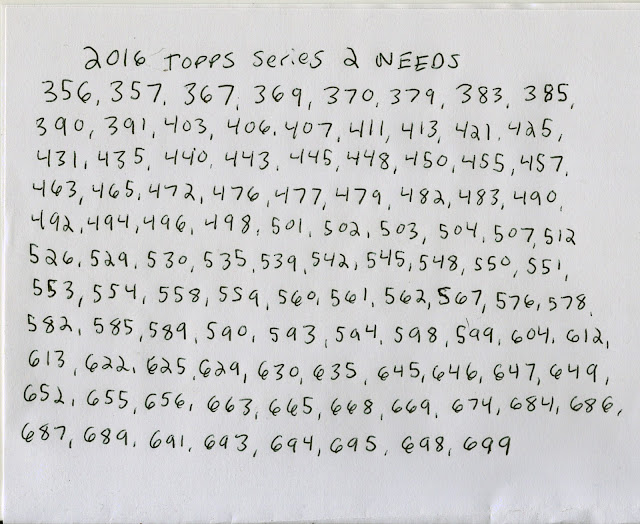 2016 TOPPS Series 2 NEEDS
356, 357, 367, 369, 370, 379, 383, 385,
390, 391, 403, 406, 407, 411, 413, 421, 425,
431, 435, 440, 443, 445, 448, 450, 455, 457,
463, 465, 472, 476, 477, 479, 482, 483, 490,
492, 494, 496, 498, 501, 502, 503, 504, 507, 512
526, 529, 530, 535, 539, 542, 545, 548, 550, 551,
553, 554, 558, 559, 560, 561, 562, 567, 576, 578,
582, 585, 589, 590, 593, 594, 598, 599, 604, 612,
613, 622, 625, 629, 630, 635, 645, 646, 647, 649,
652, 655, 656, 663, 665, 668, 669, 674, 684, 686,
687, 689, 691, 693, 694, 695, 698, 699